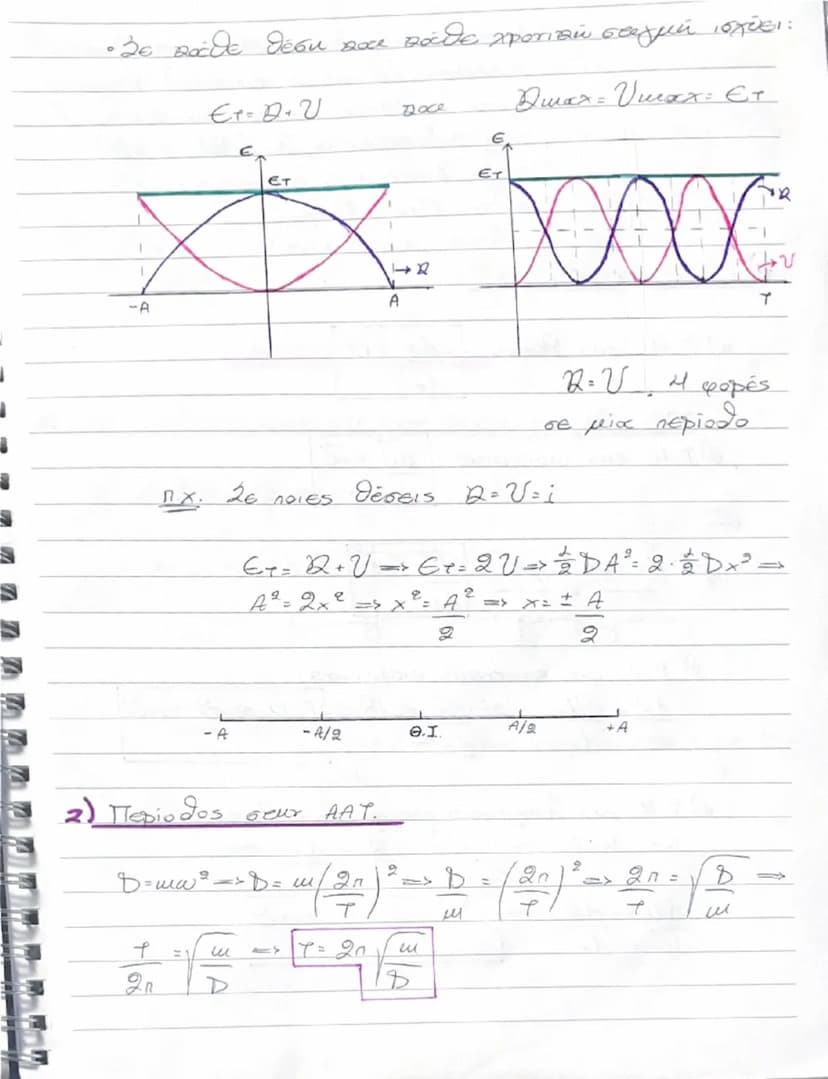 • Σε κάθε θέση και κάθε χρονική στιγμή ισχύει:
Eτ = K + U και Kmax = Umax = Eτ
E
Eτ
→ K
-A
A
E
Eτ
→ K
→ U
T
K = U, 4 φορές
σε μία περίοδο
π.χ. Σε ποιες θέσεις K = U = ;
Eτ = K + U => Eτ = 2U => 1/2 DA² = 2 · 1/2 Dx² =>
A² = 2x² => x² = A²/2 => x = ± A/2
-A -A/2 Θ.Ι. A/2 +A
2) Περίοδος στην ΑΑΤ.
D = mω² => D = m(2π/T)² => D/m = (2π/T)² => 2π/T = √(D/m) =>
T/2π = √(m/D) => T = 2π√(m/D)